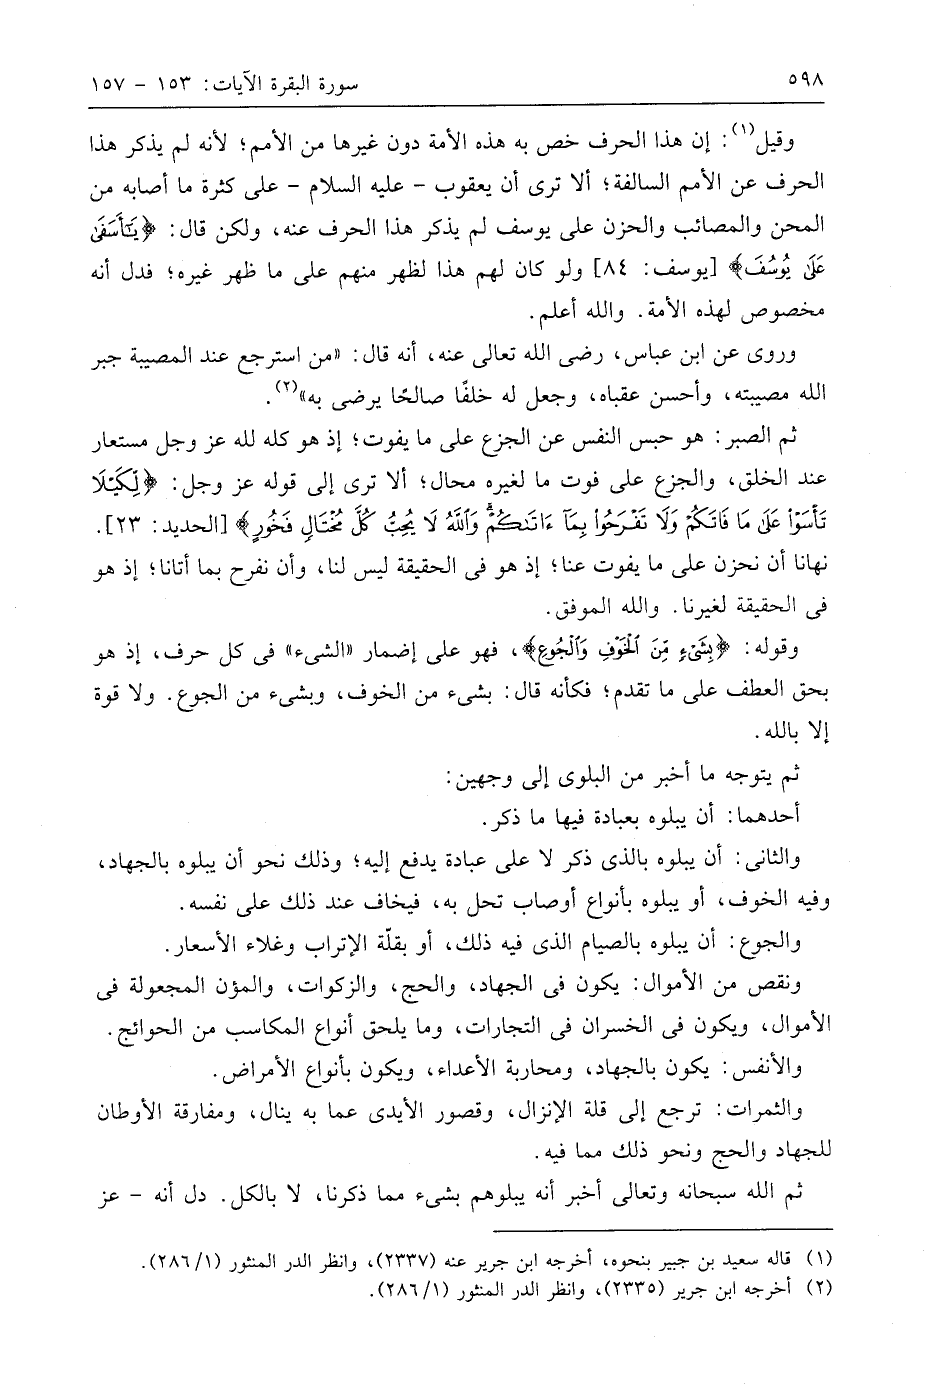 ٥٩٨ سورة البقرة الآيات: ١٥٣ - ١٥٧
وقيل(١): إن هذا الحرف خص به هذه الأمة دون غيرها من الأمم؛ لأنه لم يذكر هذا
الحرف عن الأمم السالفة؛ ألا ترى أن يعقوب - عليه السلام - على كثرة ما أصابه من
المحن والمصائب والحزن على يوسف لم يذكر هذا الحرف عنه، ولكن قال: ﴿يَٰٓأَسَفَىٰ
عَلَىٰ يُوسُفَ﴾ [يوسف: ٨٤] ولو كان لهم هذا لظهر منهم على ما ظهر غيره؛ فدل أنه
مخصوص لهذه الأمة. والله أعلم.
وروى عن ابن عباس، رضى الله تعالى عنه، أنه قال: «من استرجع عند المصيبة جبر
الله مصيبته، وأحسن عقباه، وجعل له خلفًا صالحًا يرضى به»(٢).
ثم الصبر: هو حبس النفس عن الجزع على ما يفوت؛ إذ هو كله لله عز وجل مستعار
عند الخلق، والجزع على فوت ما لغيره محال؛ ألا ترى إلى قوله عز وجل: ﴿لِّكَيْلَا
تَأْسَوْا۟ عَلَىٰ مَا فَاتَكُمْ وَلَا تَفْرَحُوا۟ بِمَآ ءَاتَىٰكُمْ ۗ وَٱللَّهُ لَا يُحِبُّ كُلَّ مُخْتَالٍ فَخُورٍ﴾ [الحديد: ٢٣].
نهانا أن نحزن على ما يفوت عنا؛ إذ هو فى الحقيقة ليس لنا، وأن نفرح بما أتانا؛ إذ هو
فى الحقيقة لغيرنا. والله الموفق.
وقوله: ﴿بِشَىْءٍ مِّنَ ٱلْخَوْفِ وَٱلْجُوعِ﴾، فهو على إضمار «الشىء» فى كل حرف، إذ هو
بحق العطف على ما تقدم؛ فكأنه قال: بشىء من الخوف، وبشىء من الجوع. ولا قوة
إلا بالله.
ثم يتوجه ما أخبر من البلوى إلى وجهين:
أحدهما: أن يبلوه بعبادة فيها ما ذكر.
والثانى: أن يبلوه بالذى ذكر لا على عبادة يدفع إليه؛ وذلك نحو أن يبلوه بالجهاد،
وفيه الخوف، أو يبلوه بأنواع أوصاب تحل به، فيخاف عند ذلك على نفسه.
والجوع: أن يبلوه بالصيام الذى فيه ذلك، أو بقلّة الإتراب وغلاء الأسعار.
ونقص من الأموال: يكون فى الجهاد، والحج، والزكوات، والمؤن المجعولة فى
الأموال، ويكون فى الخسران فى التجارات، وما يلحق أنواع المكاسب من الحوائج.
والأنفس: يكون بالجهاد، ومحاربة الأعداء، ويكون بأنواع الأمراض.
والثمرات: ترجع إلى قلة الإنزال، وقصور الأيدى عما به ينال، ومفارقة الأوطان
للجهاد والحج ونحو ذلك مما فيه.
ثم الله سبحانه وتعالى أخبر أنه يبلوهم بشىء مما ذكرنا، لا بالكل. دل أنه - عز
(١) قاله سعيد بن جبير بنحوه، أخرجه ابن جرير عنه (٢٣٣٧)، وانظر الدر المنثور (١/ ٢٨٦).
(٢) أخرجه ابن جرير (٢٣٣٥)، وانظر الدر المنثور (١/ ٢٨٦).